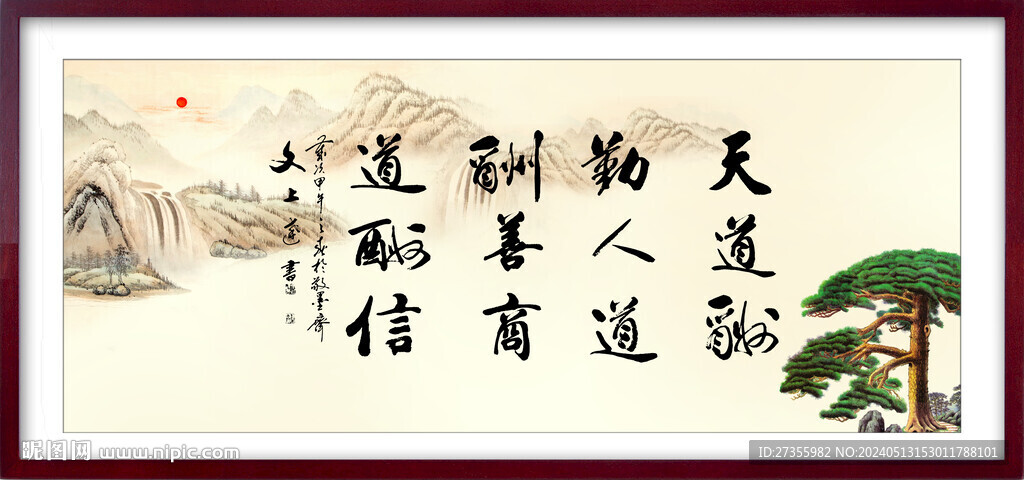 天道酬
勤人道
酬善商
道酬信
岁次甲午之春於敬墨斋
文上
书
昵图网 www.nipic.com
ID:27355982 NO:20240513153011788101